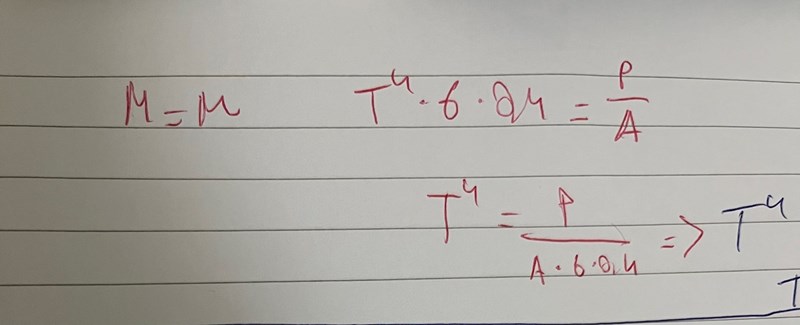 M = M T⁴ · σ · 0,4 = P/A
T⁴ = P/(A · σ · 0,4) => T⁴
T